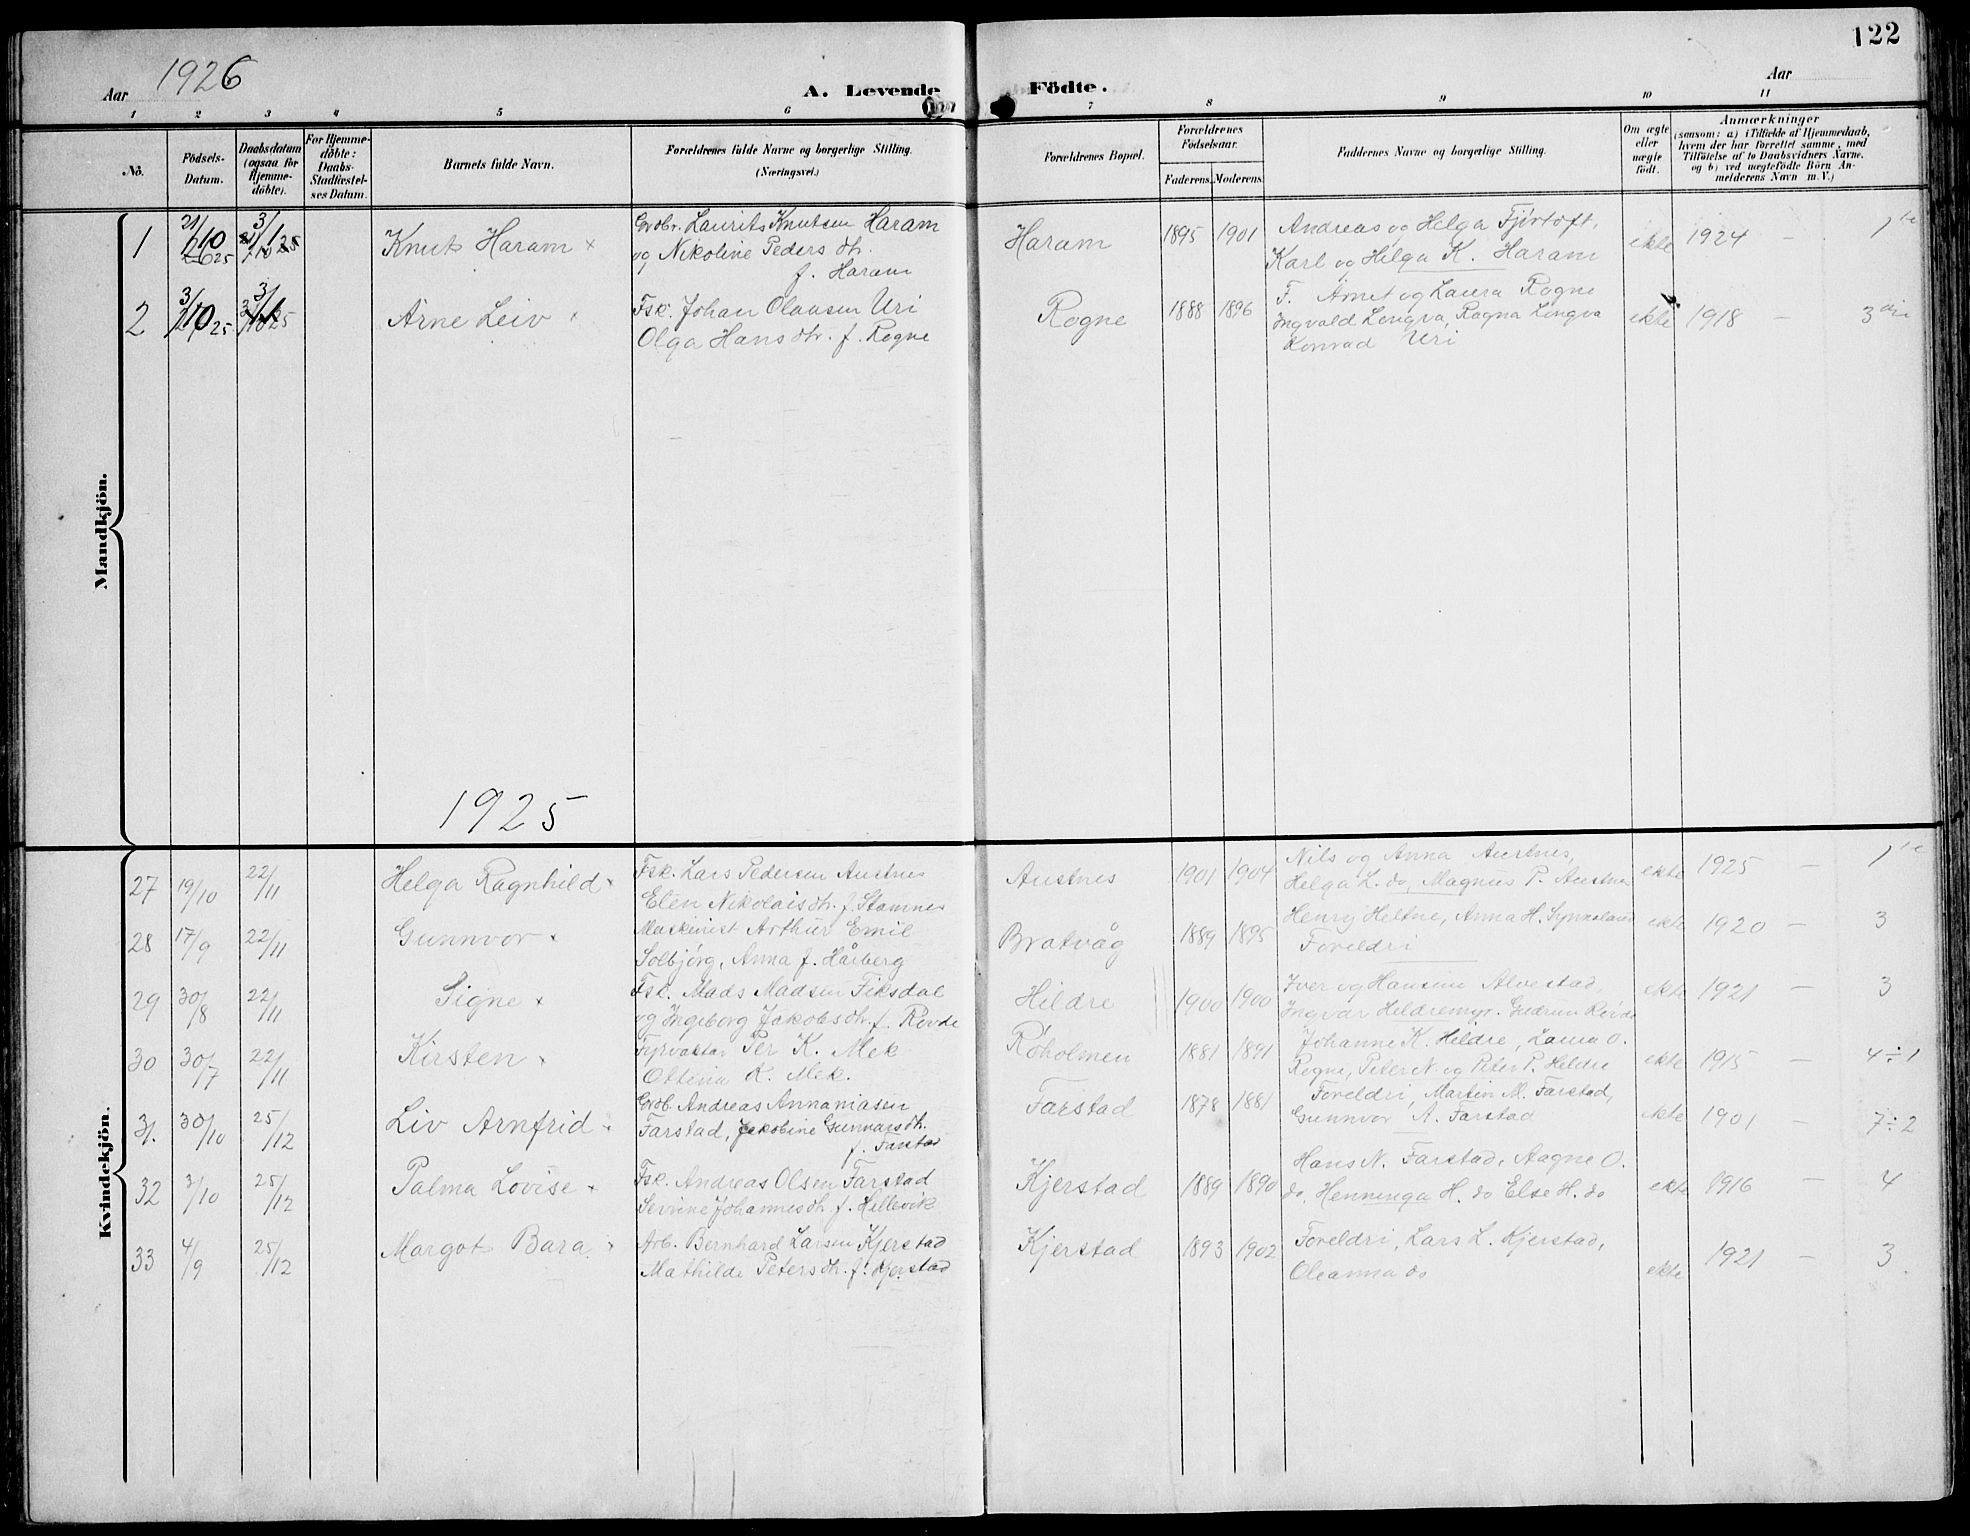 122
Aar 1926
A. Levende Födte.
Aar
1 2 3 4 5 6 7 8 9 10 11
No.
Födsels-
Datum.
Daabsdatum
(ogsaa for
Hjemme-
döbte).
For Hjemme-
döbte:
Daabs-
Stadfæstel-
ses Datum.
Barnets fulde Navn.
Forældrenes fulde Navne og borgerlige Stilling.
(Næringsvei.)
Forældrenes Bopæl.
Forældrenes
Födselsaar.
Faderens. Moderens.
Faddernes Navne og borgerlige Stilling.
Om ægte
eller
uægte
født.
Anmærkninger
(saasom: a) i Tilfælde af Hjemmedaab,
hvem der har forrettet samme, med
Tilföielse af to Daabsvidners Navne.
og b) ved uægtefödte Börn An-
melderens Navn m. V.)
Mandkjön.
1 21/10 25 3/1 Knut Haram × Grdbr. Laurits Knutsen Haram
og Nikoline Peders dtr.
f. Haram
Haram 1895 1901 Andreas og Helga Fjörtoft,
Karl og Helga K. Haram
ekte 1924 –
2 3/10 25 3/1 Arne Leiv Fsk. Johan Olausen Uri
Olga Hans dtr. f. Rogne
Rogne 1888 1896 F. Arnet og Laura Rogne
Ingvald Longva, Ragna Longva
Konrad Uri
ekte 1918 – 3
1925
Kvindekjön.
27 19/10 22/11 Helga Ragnhild × Fsk. Lars Pedersen Austnes
Elen Nikolaisdtr. f. Stamnes
Austnes 1901 1904 Nils og Anna Austnes,
Helga L. do, Magnus P. Austnes
ekte 1925 –
28 17/9 22/11 Gunnvor × Maskinist Arthur Emil
Solbjörg, Anna f. Hårberg
Bratvåg 1889 1895 Henry Heltne, Anna H.
Foreldri
ekte 1920 – 3
29 30/8 22/11 Signe × Fsk. Mads Madsen Fiksdal
og Ingeborg Jakobsdtr. f. Rövde
Hildre 1900 1900 Iver og Hansine Alvestad,
Ingvar Hildremyr. Gudrun Rövde
ekte 1921 – 3
30 30/7 22/11 Kirsten × Fyrvaktar Per K. Mek
Ottina K. Mek.
Röholmen 1881 1891 Johanne K. Hildre, Laura O.
Rogne, Peter N. og Peter P. Hildre
ekte 1915 – 4÷1
31. 30/10 25/12 Liv Arnfrid × Grdb. Andreas Annaniasen
Farstad, Jakobine Gunnarsdtr.
f. Farstad
Farstad 1878 1881 Foreldri, Martin M. Farstad,
Gunnvor A. Farstad
ekte 1901 – 7÷2
32 3/10 25/12 Palma Lovise × Fsk. Andreas Olsen Farstad
Sevrine Johannesdtr. f. Hellevik
Kjerstad 1889 1890 Hans N. Farstad, Aagne O.
do, Henninga H. do Else H. do
ekte 1916 – 4
33 4/9 25/12 Margot Bara × Arb. Bernhard Larsen Kjerstad
Mathilde Petersdtr. f. Kjerstad
Kjerstad 1893 1902 Foreldri, Lars L. Kjerstad,
Oleanna do
ekte 1921 – 3